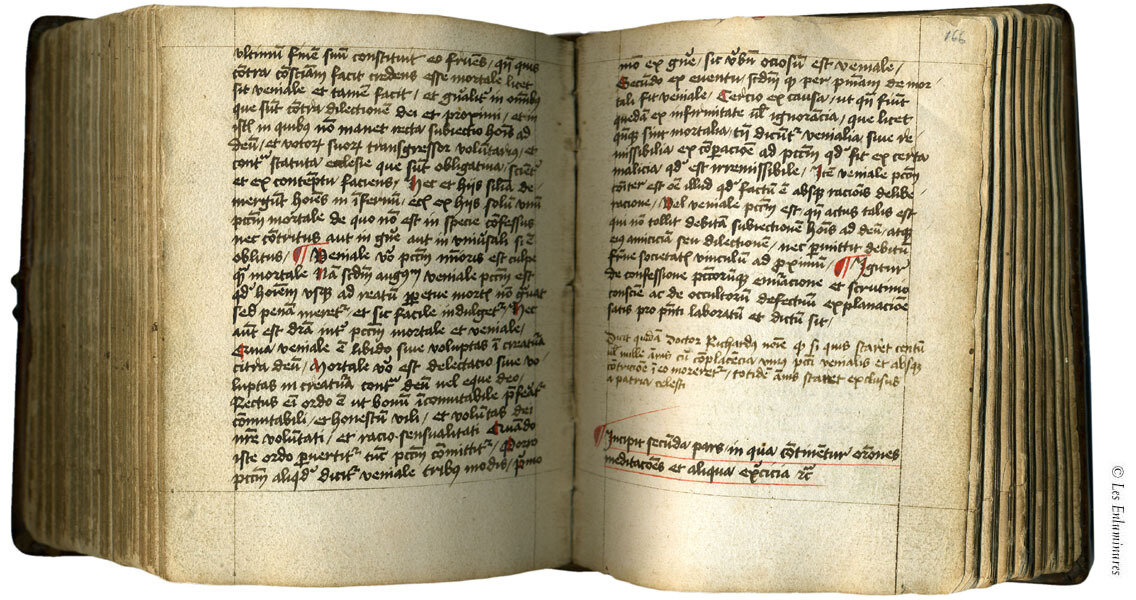 vltimū finē suū constituit eo fruēs / qn̄ quis
cōtra cōsciam facit credens esse mortale licet
sit veniale et tamen facit / et gn̄alit in om̄ibꝰ
que sūt cōtra dilectionē dei et proximi / et in
istꝭ in quibꝰ nō manet recta subiectio hoīs ad
deū / et votoꝝ suoꝝ transgressor volūtariꝰ / et
contͣ statuta ecclesie que sūt obligatiua / sciēt
et ex contēptu faciens / Hec et hijs silīa de-
mergūt hoīes in īfernū / etꝭ ex hijs solū vnū
pctm̄ mortale de quo nō est in specie cōfessus
nec cōtritus aut in gn̄e aut in vniūsali si ē
oblitus / ¶ Veniale vo pctm̄ mīoris est culpe
qͣ mortale Nā scdm̄ augꝯ veniale pctm̄ est
qd hoīem vsqꝫ ad reatū ꝑpetue mortꝭ nō
sed penā meret² / et sic facile indulget² / Hec
aut est dr̄ia int² pctm̄ mortale et veniale /
Culpa veniale ē libido siue voluptas ī creatura
citra deū / Mortale vo est delectacio siue vo-
luptas in creatura contͣ deū uel eque deo /
Rectus em̄ ordo ē ut bonū īcōmutabile p̄ferat²
cōmutabili / et honestū vtili / et volūtas dei
nr̄e volūtati / et racio sensualitati Quādo
iste ordo ꝑuertit² tūc pctm̄ cōmittit² / Porro
pctm̄ aliqd dicit² veniale tribus modis / p̄mo
166
mō ex gn̄e / sic v̄bū ociosū est veniale /
Secūdo ex euentu / scdm̄ qꝫ per pn̄iam de mor
tali fit veniale / Tercio ex causa / ut qn̄ fiūt
quedā ex infirmitate ul ignorācia / que licet
qn̄qꝫ sint mortalia / tn̄ dicūt² venialia siue re-
missibilia ex cōparacōe ad pctm̄ qd fit ex certa
malicia / qd est irremissibile / Itē veniale pctm̄
cōiter est oē illud qd factū ē absqꝫ racionis delibe-
racione / Vel veniale pctm̄ est / qn̄ actus talis est
qui nō tollit debitā subiectionē hoīs ad deū / atqꝫ
eiꝰ amiciciā seu dilectionē / nec ꝑmittit debitū
frn̄e societatꝭ vinculū ad proximū / ¶ Igitur
de confessione pctōrumqꝫ emūacione et scrutinio
consciē ac de occultorū defectuū explanacōe
satis pro pn̄ti laboratū et dictū sit /
Dicit quidā Doctor Richardꝰ noīe qꝫ si quis staret centū
ul mille ānis cū cōplacēcia vniꝰ pcti venialis et absqꝫ
cōtricōe ī eo moreret² / totidē ānis staret exclusus
a patria celesti
Incipit secūda pars in qua cōtinent² orōnes
meditacōes et aliqua ex̄cicia rͨ
© Les Enluminures